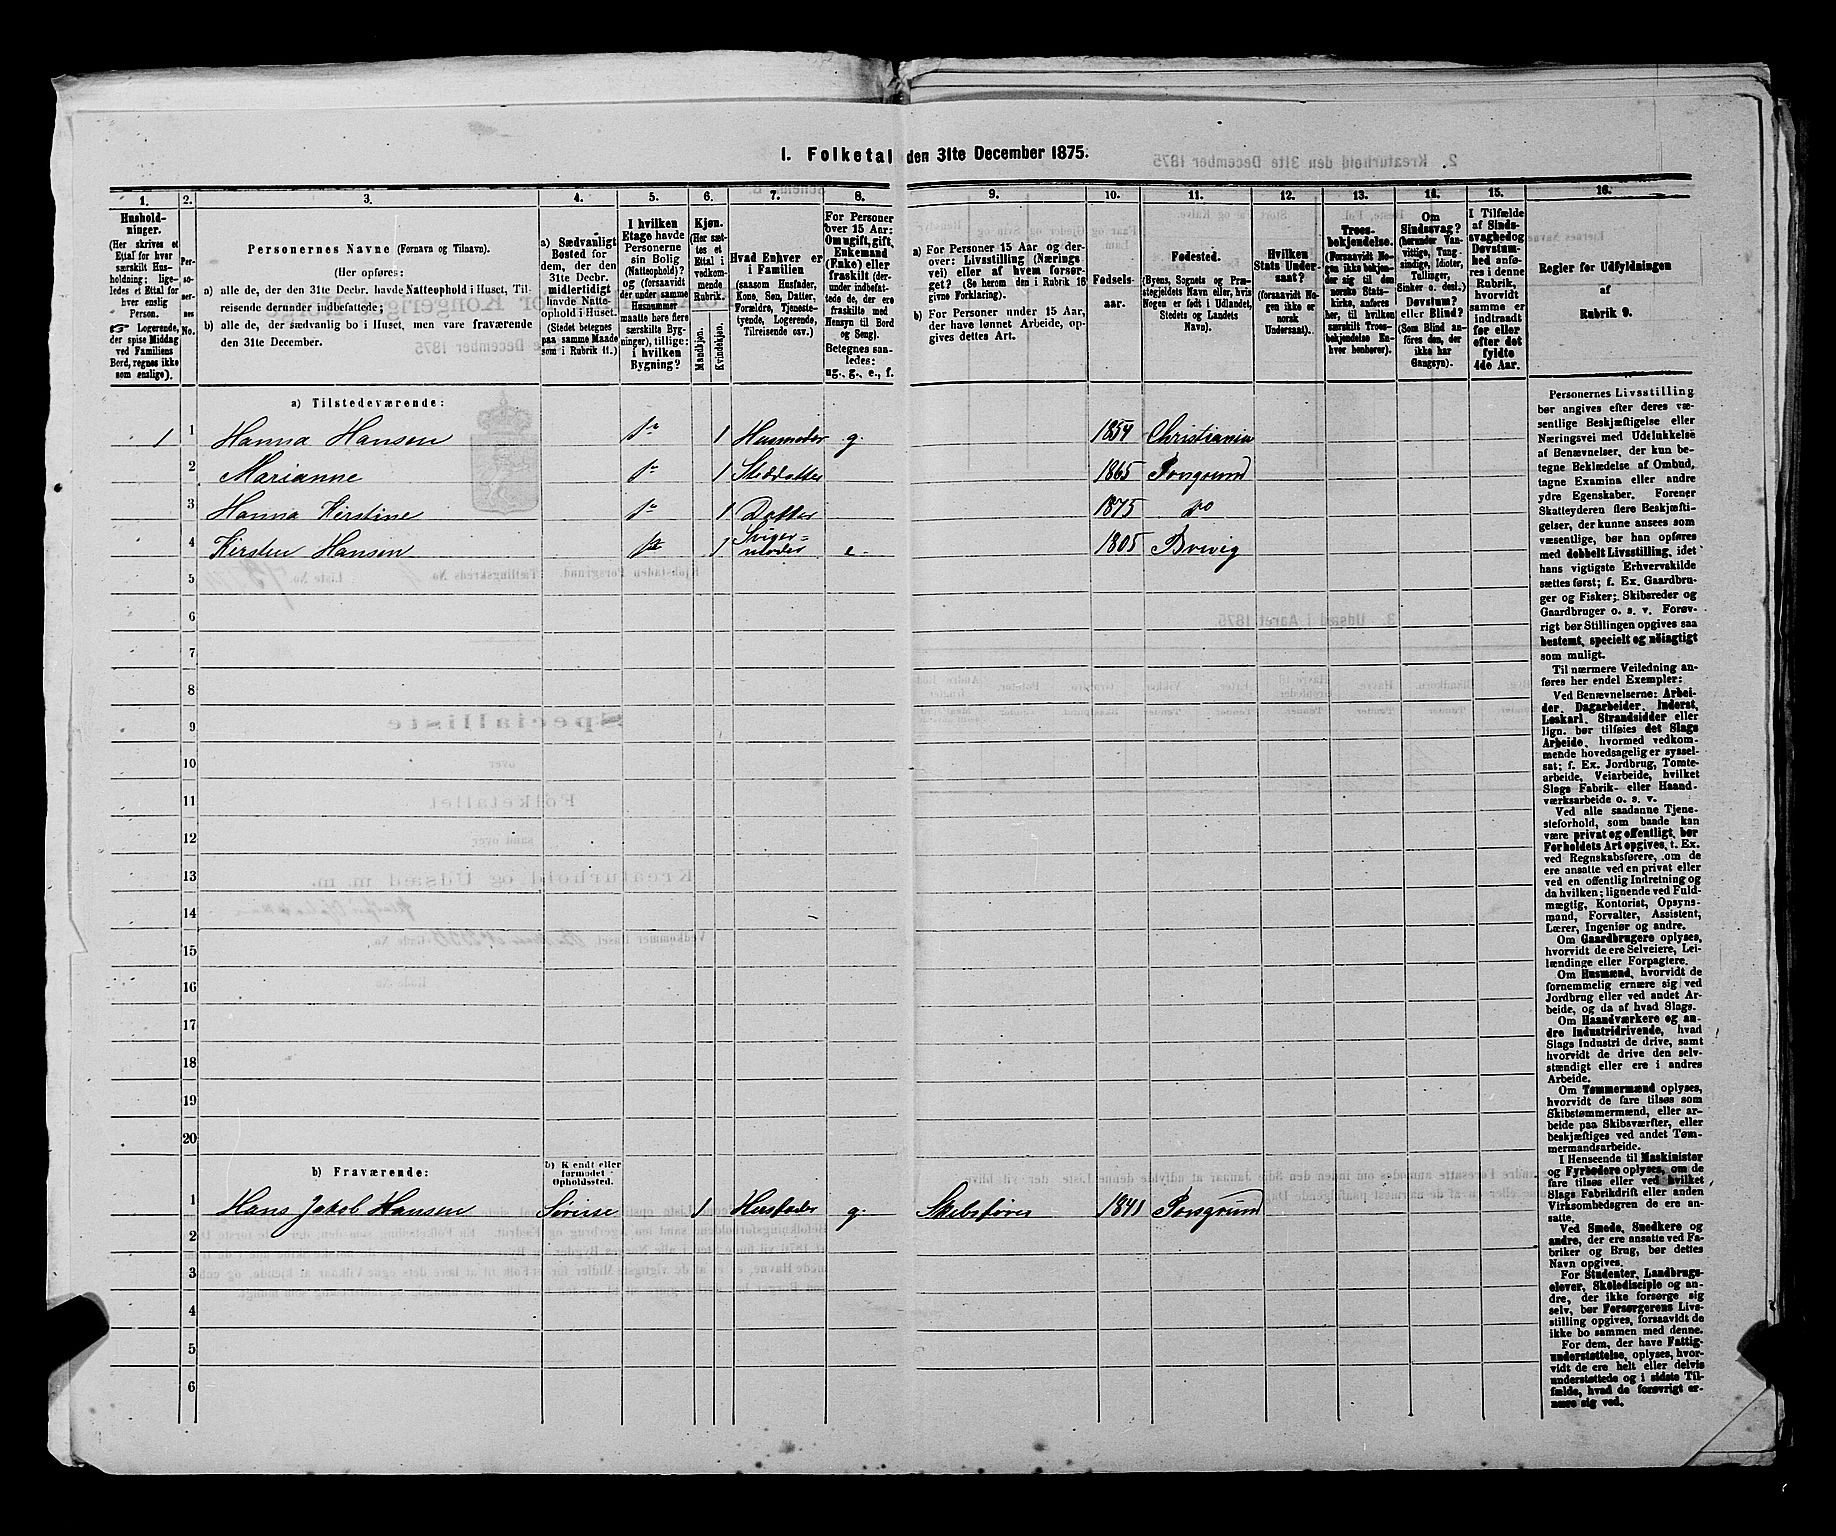 1. Folketal den 31te December 1875.
1.
2.
3.
4.
5.
6.
7.
8.
9.
10.
11.
12.
13.
14.
15.
16.
Hushold-
ninger.
(Her skrives et
Ettal for hver
særskilt Hus-
holdning; lige-
ledes et Ettal for
hver enslig
Person.
Logerende,
der spise Middag
ved Familiens
Bord, regnes ikke
som enslige).
Per-
so-
ner-
nes
No.
Personernes Navne (Fornavn og Tilnavn).
(Her opføres:
a) alle de, der den 31te Decbr. havde Natteophold i Huset, Til-
reisende derunder indbefattede;
b) alle de, der sædvanlig bo i Huset, men vare fraværende
den 31te December.
a) Sædvanligt
Bosted for
dem, der den
31te Decbr.
midlertidigt
havde Natte-
ophold i Huset.
(Stedet betegnes
paa samme Maade
som i Rubrik 11.)
I hvilken
Etage havde
Personerne
sin Bolig
(Natteophold)?
og (forsaavidt
der under samme
Husnummer
maatte høre flere
særskilte Byg-
ninger), tillige:
i hvilken
Bygning?
Kjøn.
(Her sæt-
tes et
Ettal i
vedkom-
mende
Rubrik.
Mandkjøn.
Kvindekjøn.
Hvad Enhver er
i Familien
(saasom Husfader,
Kone, Søn, Datter,
Forældre, Tjeneste-
tyende, Logerende,
Tilreisende osv.)
For Personer
over 15 Aar:
Om ugift, gift,
Enkemand
(Enke) eller
fraskilt (der-
under indbefat-
tede de, der ere
fraskilte med
Hensyn til Bord
og Seng).
Betegnes saa-
ledes:
ug., g., e., f.
a) For Personer 15 Aar og der-
over: Livsstilling (Nærings
vei) eller af hvem forsør-
get? (Se herom den i Rubrik 16
givne Forklaring).
b) For Personer under 15 Aar,
der have lønnet Arbeide, op-
gives dettes Art.
Fødsels-
aar.
Fødested.
(Byens, Sognets og Præ-
stegjeldets Navn eller, hvis
Nogen er født i Udlandet,
Stedets og Landets
Navn).
Hvilken
Stats Under-
saat?
(forsaavidt No-
gen ikke er
norsk
Undersaat).
Troes-
bekjendelse.
(Forsaavidt No-
gen ikke bekjen-
der sig til den
norske Stats-
kirke, anføres
her, til hvilken
særskilt Troes-
bekjendelse En-
hver henhører).
Om
Sindssvag?
(herunder Van-
vittige, Tung-
sindige, Idioter,
Tullinger,
Sinker o. desl.)
Døvstum?
eller Blind?
(Som Blind an-
føres den, der
ikke har
Gangsyn).
I Tilfælde
af Sinds-
svaghed og
Døvstum-
hed anfø-
res i denne
Rubrik,
hvorvidt
samme er
indtraadt
før eller
efter det
fyldte
4de Aar.
Regler for Udfyldningen
af
Rubrik 9.
a) Tilstedeværende:
1 1 Hanna Hansen 1 Husmoder g. 1854 Christiania
2 Marianne 1 Steddatter 1865 Porsgrund
3 Hanna Kirstine 1 Datter 1875 do
4 Kirsten Hansen 1 Sviger-
moder e. 1805 Brevig
5
6
7
8
9
10
11
12
13
14
15
16
17
18
19
20
b) Fraværende:
b) Kendt eller
formodet
Opholdssted.
1 Hans Jakob Hansen 1 Husfader g. Skibsfører 1841 Porsgrund
2
3
4
5
6
Personernes Livsstilling
bør angives efter deres væ-
sentlige Beskjæftigelse eller
Næringsvei med Udelukkelse
af Benævnelser, der kun be-
tegne Beklædelse af Ombud,
tagne Examina eller andre
ydre Egenskaber. Forener
Skatteyderen flere Beskjæfti-
gelser, der kunne ansees som
væsentlige, bør han opføres
med dobbelt Livsstilling, idet
hans vigtigste Erhvervskilde
sættes først; f. Ex. Gaardbru-
ger og Fisker; Skibsreder og
Gaardbruger o. s. v. Forøv-
rigt bør Stillingen opgives saa
bestemt, specielt og nøiagtigt
som muligt.
Til nærmere Veiledning an-
føres her endel Exempler:
Ved Benævnelserne: Arbei-
der, Dagarbeider, Inderst,
Løskarl, Strandsidder eller
lign. bør tilføies det Slags
Arbeide, hvormed vedkom-
mende hovedsagelig er syssel-
sat; f. Ex. Jordbrug, Tomte-
arbeide, Veiarbeide, hvilket
Slags Fabrik- eller Haand-
værksarbeide o. s. v.
Ved alle saadanne Tjene-
steforhold, som baade kan
være privat og offentligt, bør
Forholdets Art opgives, t. Ex.
ved Regnskabsførere, om de
ere ansatte ved en privat eller
ved en offentlig Indretning og
da hvilken; lignende ved Fuld-
mægtig, Kontorist, Opsyns-
mand, Forvalter, Assistent,
Lærer, Ingeniør og andre.
Om Gaardbrugere oplyses,
hvorvidt de ere Selveiere, Lei-
lændinge eller Forpagtere.
Om Husmænd, hvorvidt de
fornemmelig ernære sig ved
Jordbrug eller ved andet Ar-
beide, og da af hvad Slags.
Om Haandværkere og an-
dre Industridrivende, hvad
Slags Industri de drive, samt
hvorvidt de drive den selv-
stændigt eller ere i andres
Arbeide.
Om Tømmermænd oplyses,
hvorvidt de fare tilsøs som
Skibstømmermænd, eller ar-
beide paa Skibsværfter, eller
beskjæftiges ved andet Tøm-
mermandsarbeide.
I Henseende til Maskinister
og Fyrbødere oplyses, om de
fare tilsøs eller ved hvilket
Slags Fabrikdrift eller anden
Virksomhedsgren de ere an-
satte.
Ved Smede, Snedkere og
andre, der ere ansatte ved Fa-
briker og Brug, bør dettes
Navn opgives.
For Studenter, Landbrugs-
elever, Skoledisciple og an-
dre, der ikke forsørge sig
selv, bør Forsørgerens Livs-
stilling opgives, forsaavidt de
ikke bo sammen med denne.
For dem, der have Fattig-
understøttelse, oplyses, hvor-
vidt de ere helt eller delvis
understøttede og i sidste Til-
fælde, hvad de forøvrigt er-
nære sig ved.